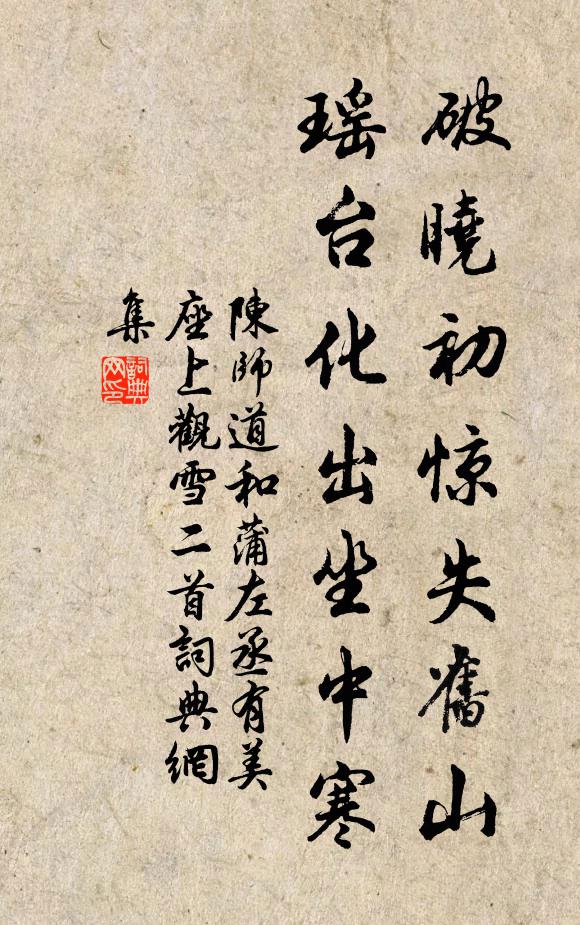 破曉初惊失舊山
瑶台化出坐中寒
陳師道和蒲左丞有美
座上觀雪二首詞典網
集
詞典
网印